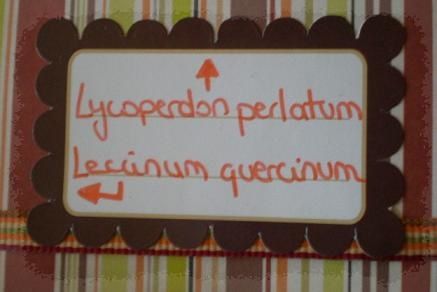 Lycoperdon perlatum
Leccinum quercinum